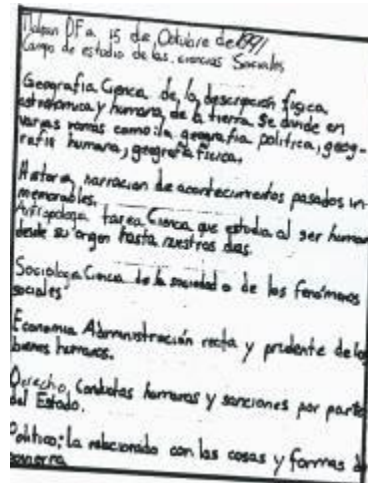 Tlalpan D.F. a, 15 de Octubre de 1991
Campo de estudio de las ciencias Sociales
Geografia Cienca de la descripción física,
astronomica y humana, de la tierra. Se divide en
varias ramas como: la geografia politica, geog-
rafia humana, geografia fisica.
Historia, narracion de acontecimientos pasados in-
memorables.
Antropologia tarea Cienca que estudia al ser human
desde su origen hasta nuestros dias.
Sociologia Cienca de la sociedad o de los fenómenos
sociales
Economia Administración recta y prudente de los
bienes humanos.
Derecho, Conductas humanas y sanciones por parte
del Estado.
Politica: la relacionado con las cosas y formas d